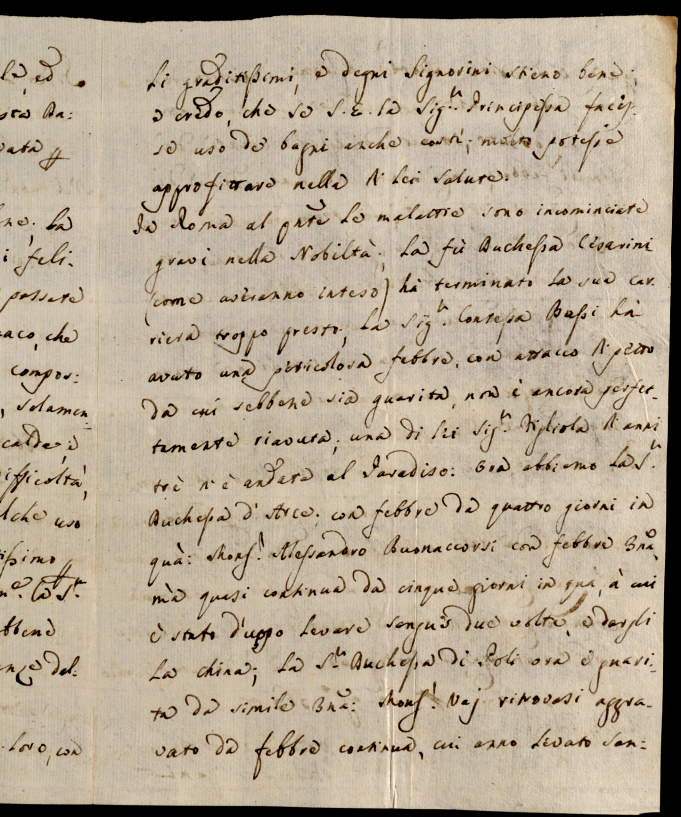 le ed
sta Ba:
vata
ne; La
i feli-
possere
aco, che
compos:
, solamen-
calde; è
ifficoltà,
lche uso
issimo
me. La S.ra
bbene
enze del-
Loro, con
Li graditissimi, e degni Signorini stieno bene;
e credo, che se S. E. la Sig.ra Principessa faces-
se uso de bagni anche costì, molto potesse
approfittare nella di lei salute.
In Roma al pnte le malattie sono incominciate
gravi nella Nobiltà; La fù Duchessa Cesarini
(come averanno inteso) hà terminato la sua car-
riera troppo presto; La Sig.ra Contessa Bussi hà
avuto una pericolosa febbre, con attacco di petto
da cui sebbene sia guarita, non è ancora perfet-
tamente riavuta; una di lei Sig.ra Figliola di anni
trè n'è andata al Paradiso: Ora abbiamo la S.ra
Duchessa d'Arce; con febbre da quattro giorni in
quà: Mons.r Alessandro Buonaccorsi con febbre 3na,
mà quasi continua da cinque giorni in quà, à cui
è stato d'uopo levare sangue due volte, e dargli
La china; La S.ra Duchessa di Poli ora è guari-
ta da simile 3na: Mons.r Vaj ritrovasi aggra-
vato da febbre continua, cui anno levato san=